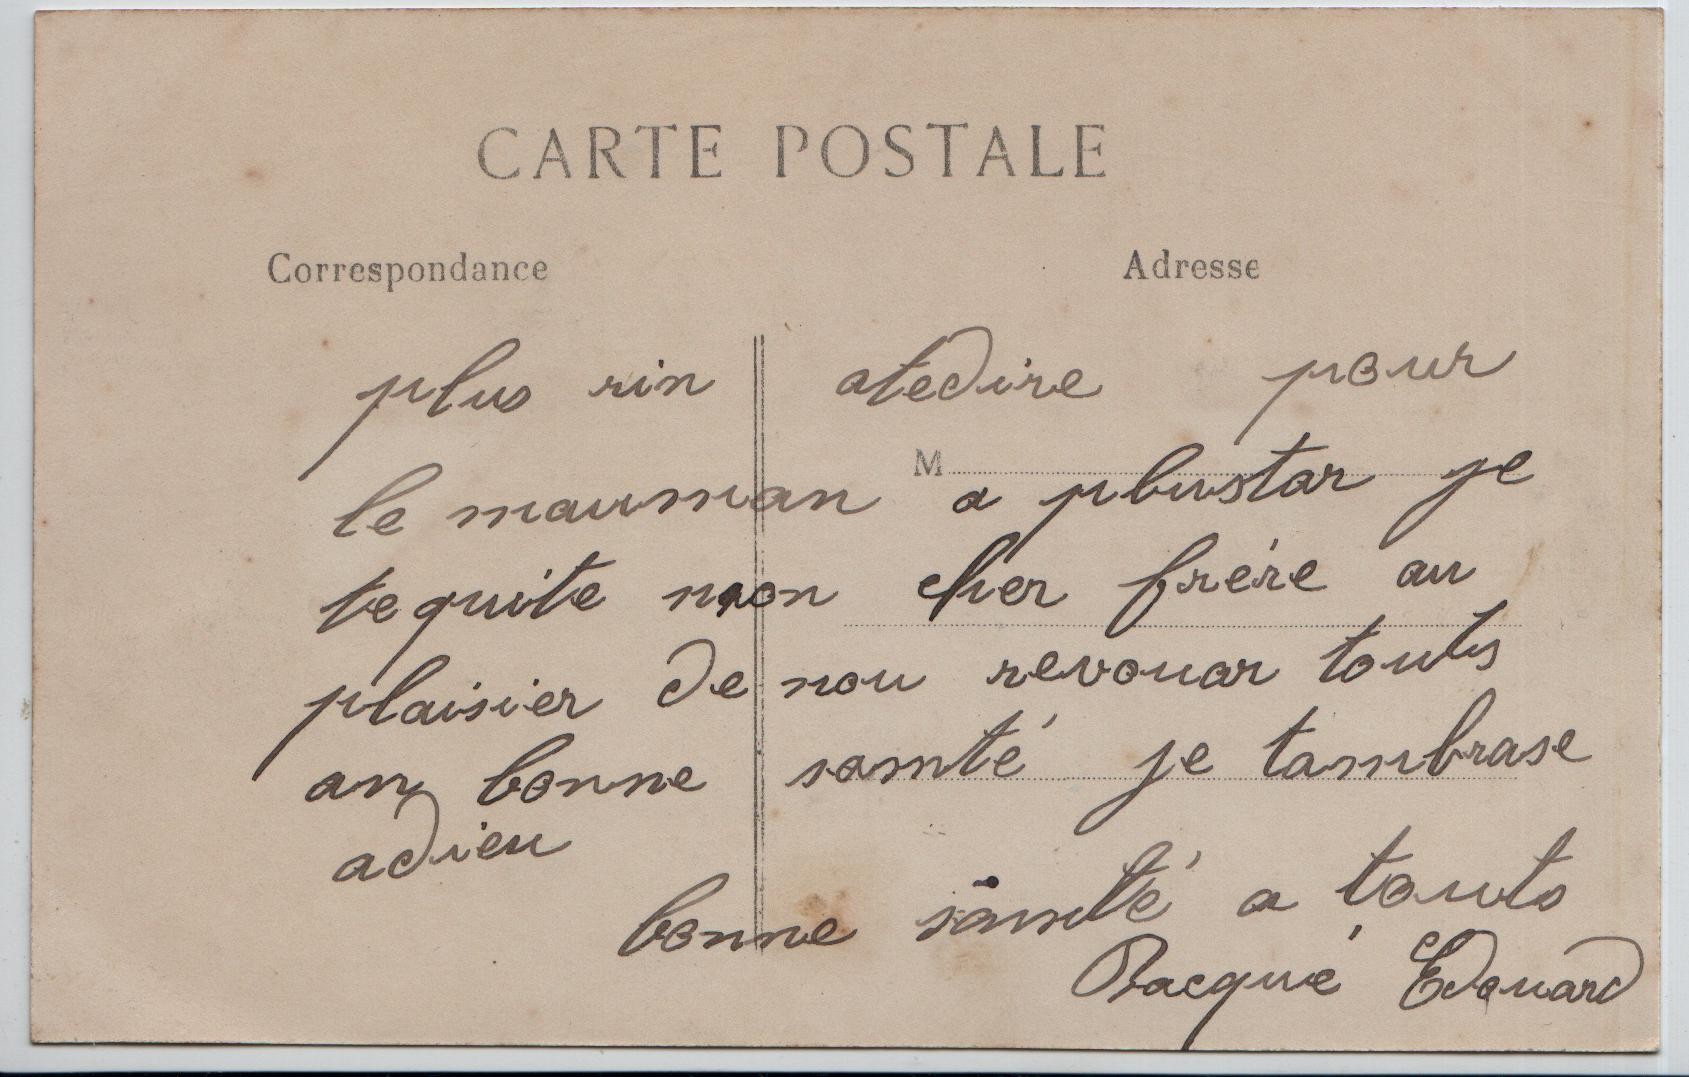 CARTE POSTALE
Correspondance
Adresse
plus rin atedire pour
M
le mauman a plustar je
te quite mon cher frére au
plaisier de nou revouar touts
an bonne samté je tambrase
adieu
bonne samté a touts
Edouard